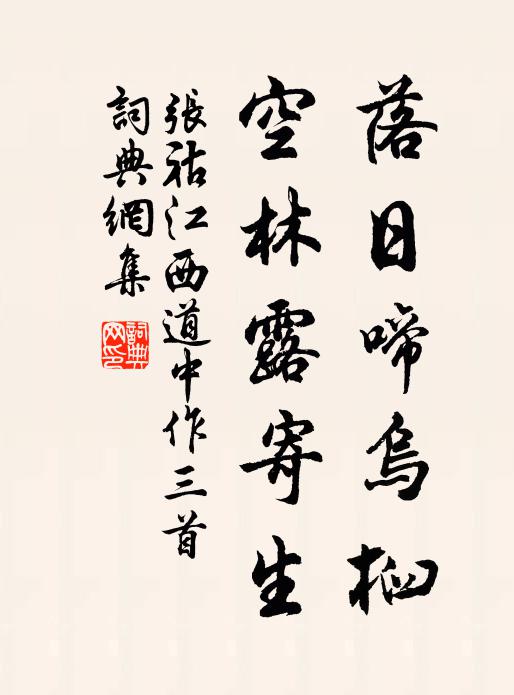 落日啼烏桕
空林露寄生
張祜江西道中作三首
詞典網集
詞典網印